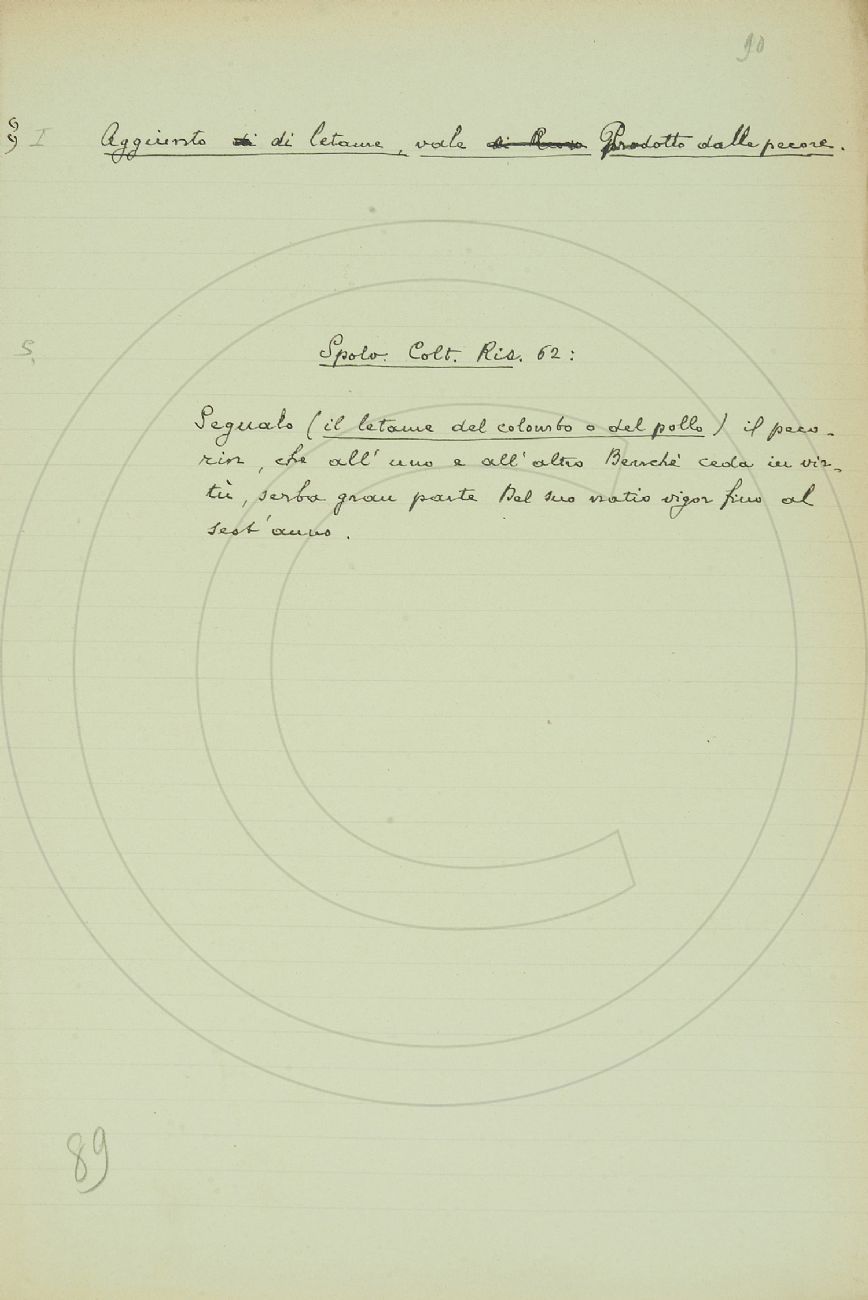 90
§ I Aggiunto di di letame, vale Prodotto dalle pecore.
S. Spolv. Colt. Ris. 62:
Segualo (il letame del colombo o del pollo) il peco-
rin, che all'uno e all'altro Benchè ceda in vir-
tù, serba gran parte Del suo natio vigor fino al
sest'anno.
89